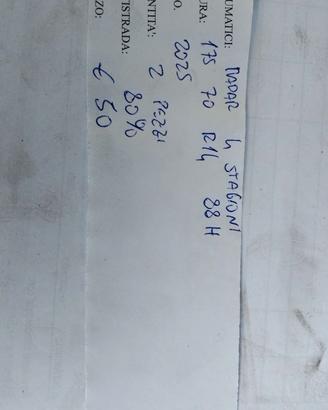 UMATICI: NADAR 4 STAGIONI
URA: 175 70 R14 88H
O. 2025
NTITA': 2 PEZZI
TISTRADA: 80%
ZO: € 50